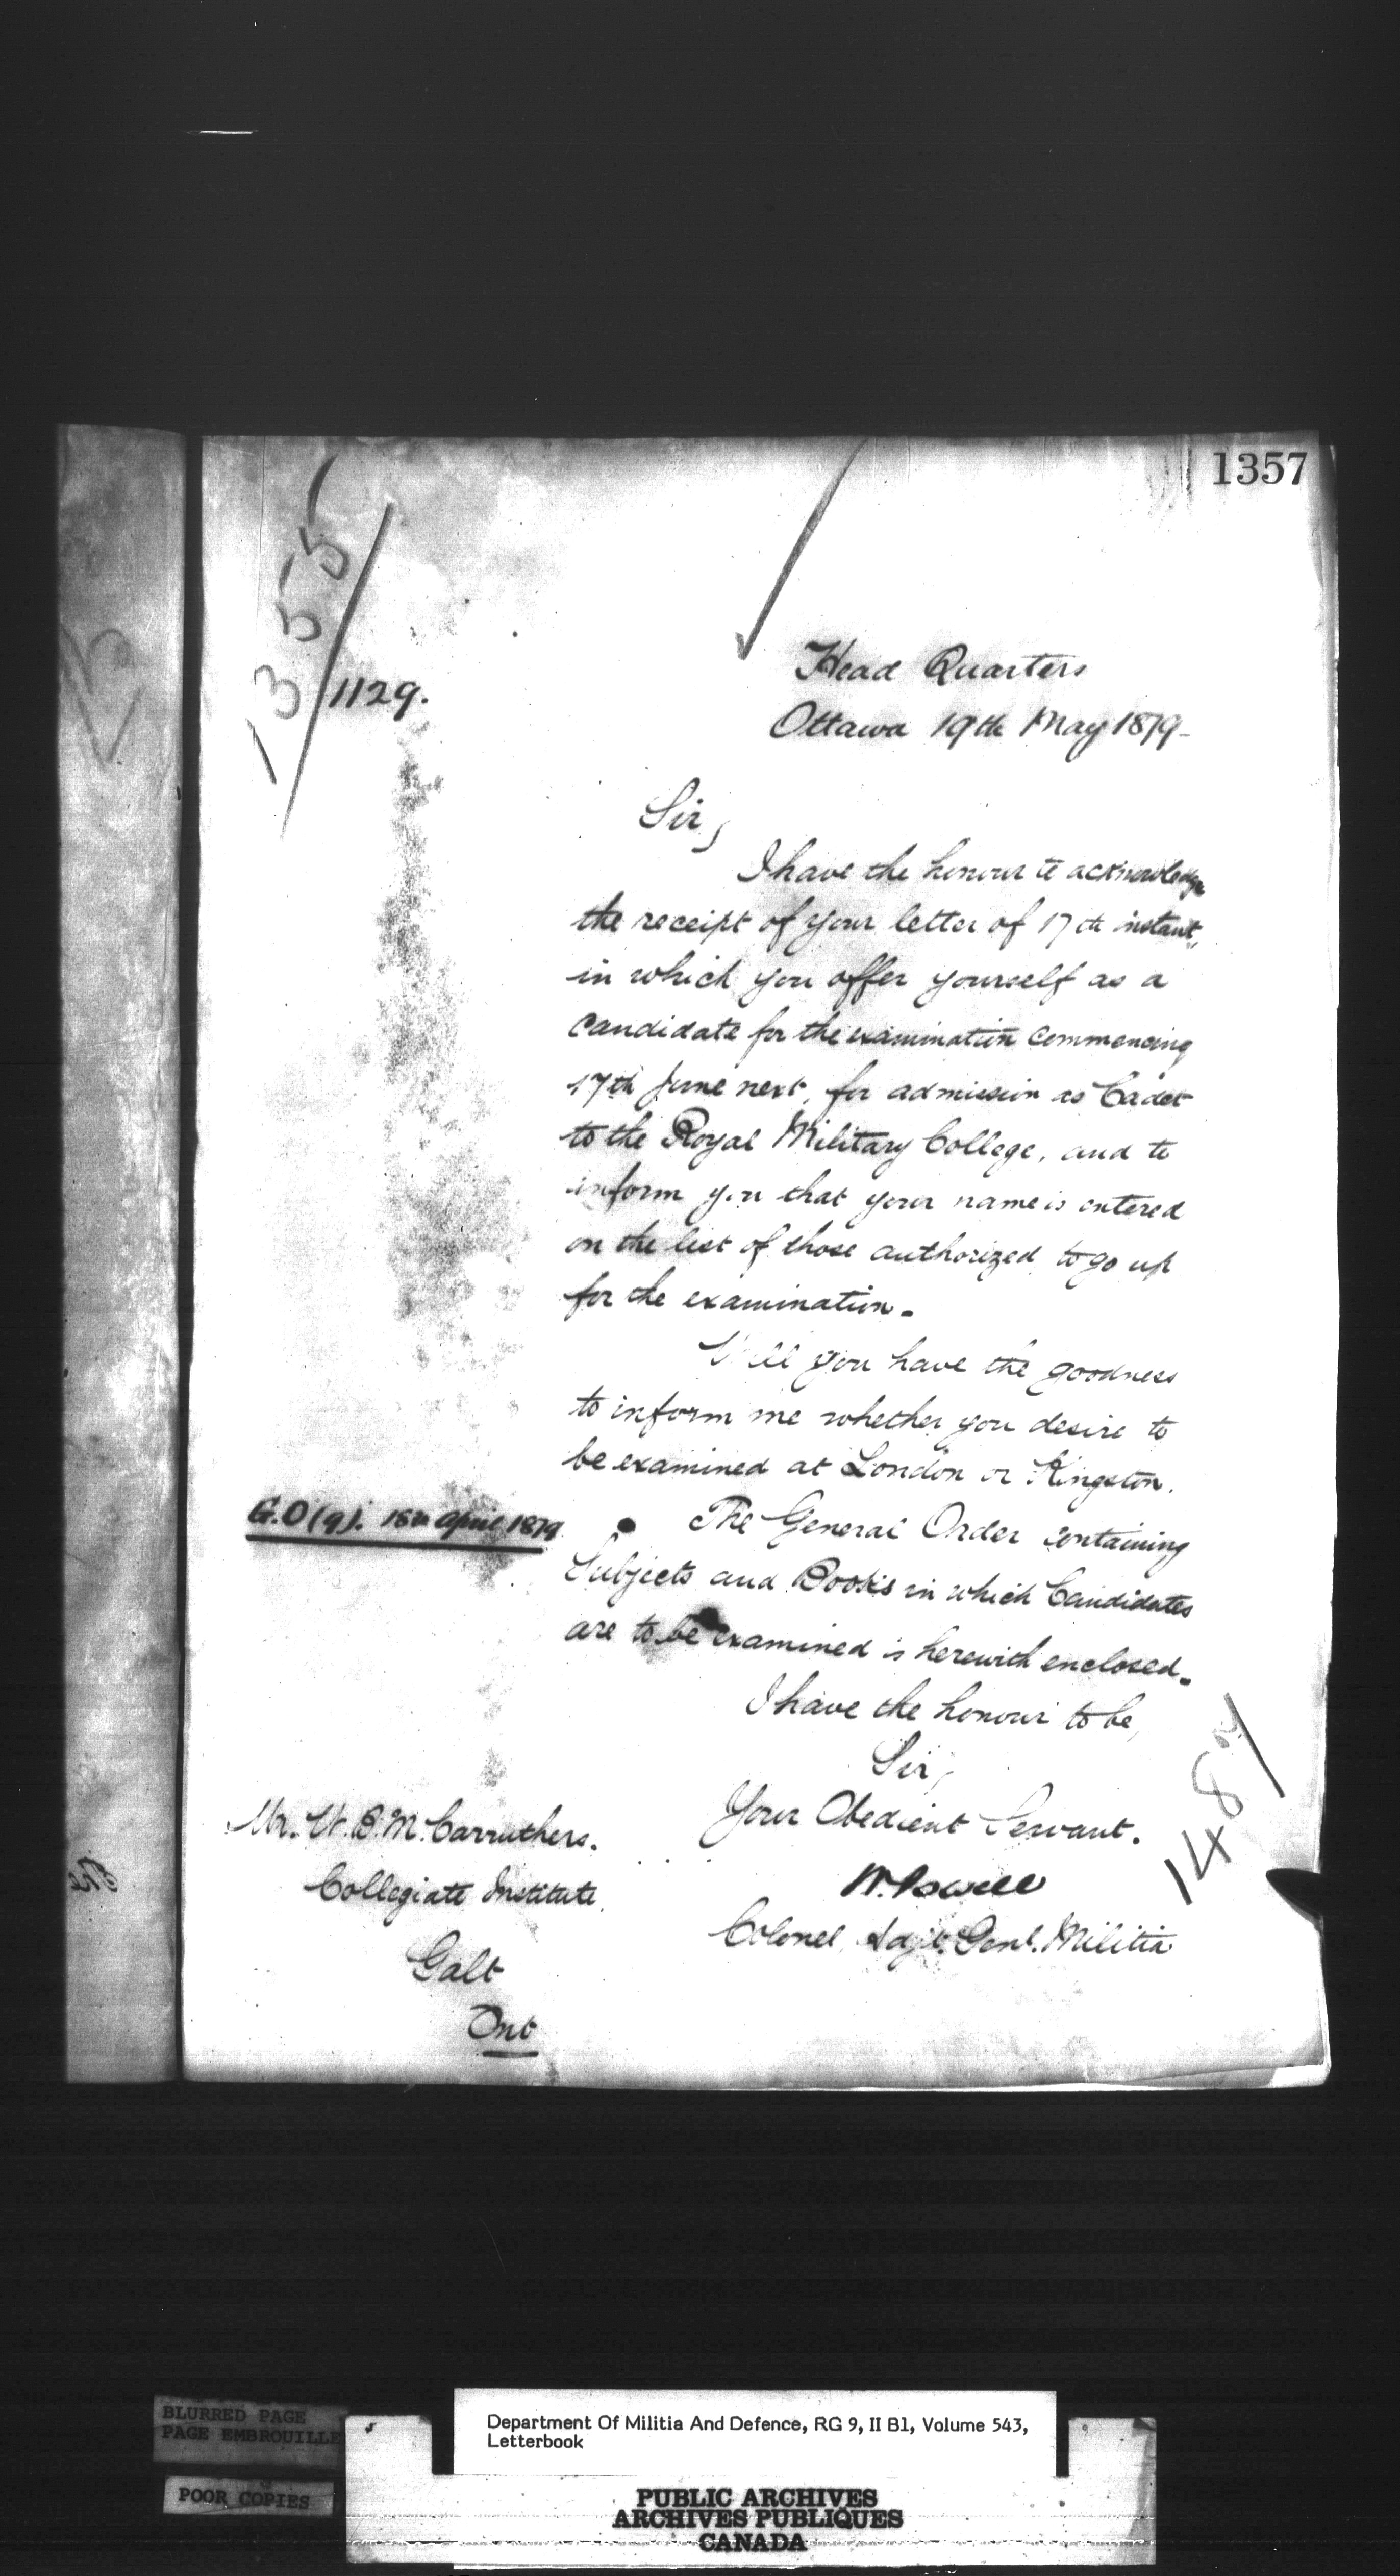 1357
1355
1129.
Head Quarters
Ottawa 19th May 1879-
Sir,
I have the honour to acknowledge
the receipt of your letter of 17th instant,
in which you offer yourself as a
Candidate for the examination commencing
17th June next, for admission as Cadet
to the Royal Military College, and to
inform you that your name is entered
on the list of those authorized to go up
for the examination.
Will you have the goodness
to inform me whether you desire to
be examined at London or Kingston.
G.O (9). 18th April 1879
The General Order containing
Subjects and Books in which Candidates
are to be examined is herewith enclosed.
I have the honour to be,
Sir,
Your Obedient Servant.
W. Powell
Colonel, Adjt. Genl. Militia
Mr. W. B. M. Carruthers.
Collegiate Institute,
Galt
Ont
BLURRED PAGE
PAGE EMBROUILLE
POOR COPIES
Department Of Militia And Defence, RG 9, II B1, Volume 543,
Letterbook
PUBLIC ARCHIVES
ARCHIVES PUBLIQUES
CANADA